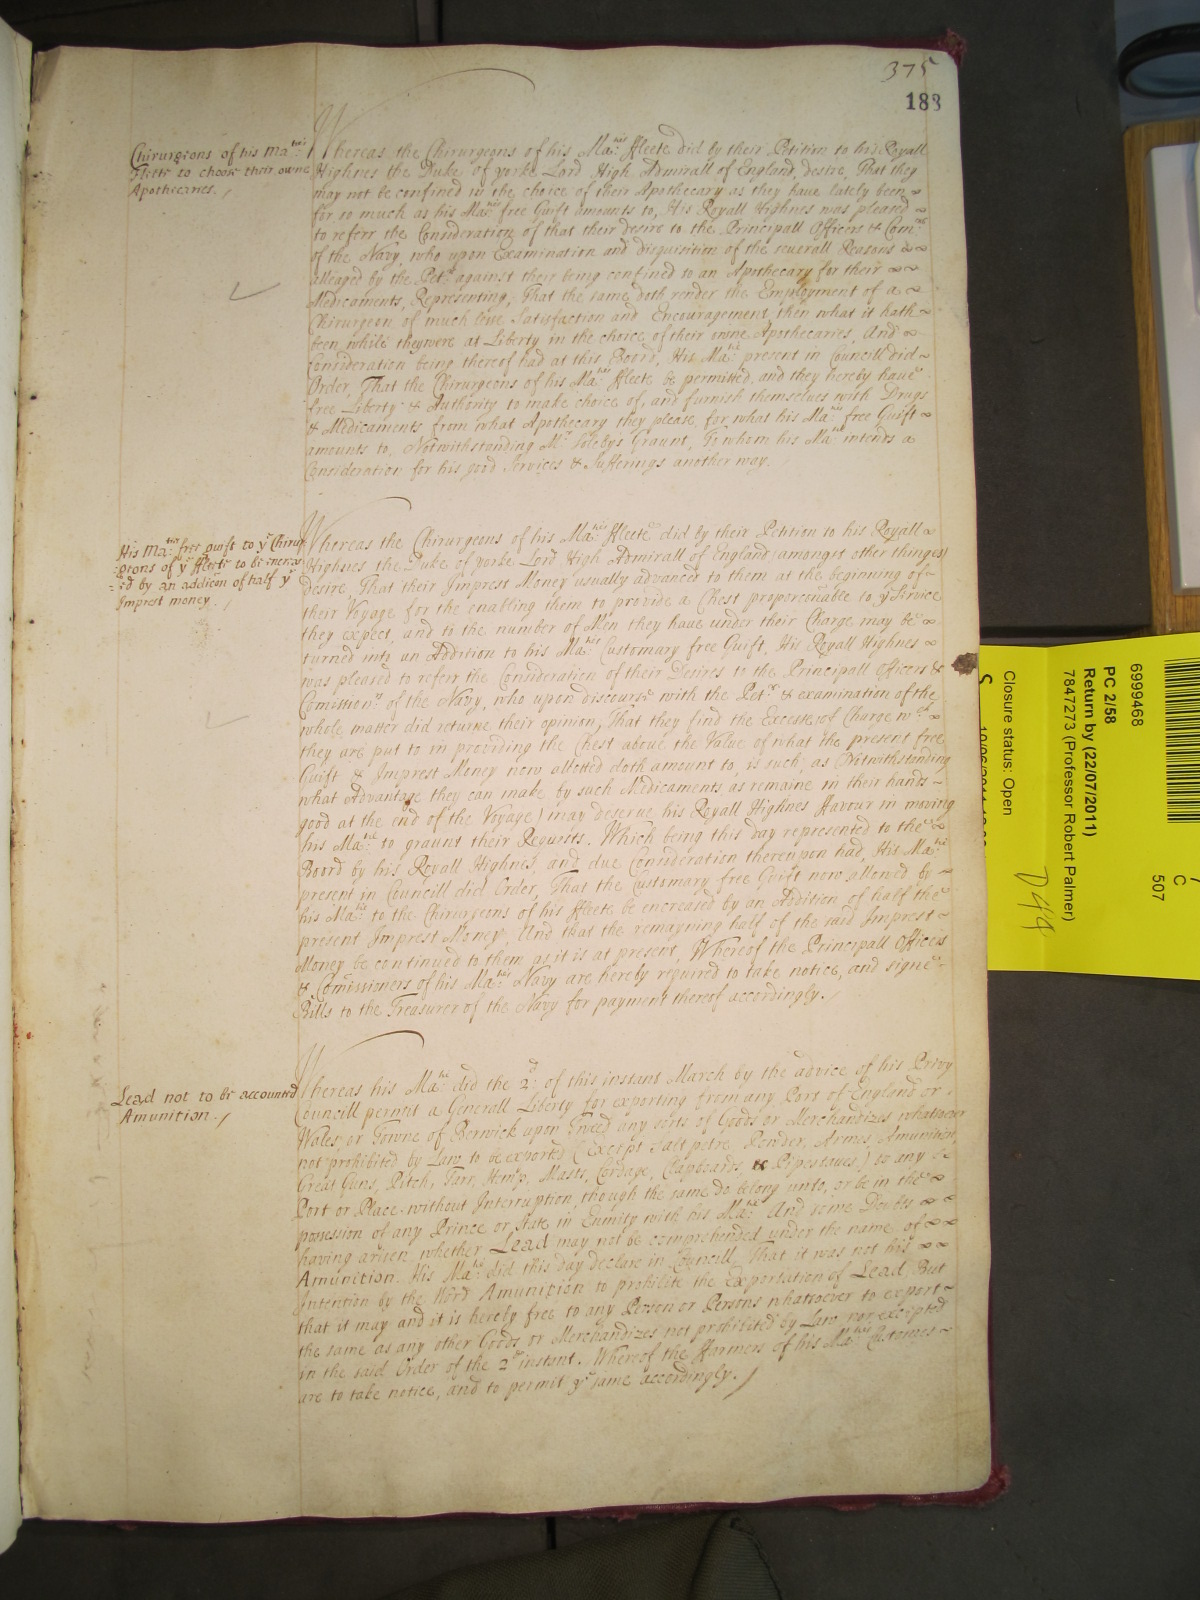 375
188
Chirurgeons of his Ma.ties
Fleete to choose their owne
Apothecaries.
Whereas the Chirurgeons of his Ma:ties ffleete did by their Petition to his Royall
Highnes the Duke of yorke Lord High Admirall of England, desire, That they
may not be confined in the choice of their Apothecary as they have lately been
for so much as his Ma:ties free Guift amounts to, His Royall Highnes was pleased
to referr the Consideration of that their desire to the Principall Officers & Com:rs
of the Navy, who upon Examination and disquisition of the severall Reasons
alleaged by the Pet:rs against their being confined to an Apothecary for their
Medicaments, Representing, That the same doth render the Employment of a
Chirurgeon of much less Satisfaction and Encouragement then what it hath
been while they were at Liberty in the choice of their owne Apothecaries, And
Consideration being thereof had at this Board, His Ma:tie present in Councill did
Order, That the Chirurgeons of his Ma:ties ffleete be permitted, and they hereby have
free Liberty & Authority to make choice of, and furnish themselves with Drugs
& Medicaments from what Apothecary they please, for what his Ma:ties free Guift
amounts to, Notwithstanding Mr Graunt, To whom his Ma:tie intends a
Consideration for his good Services & Sufferings another way.
His Ma:ties free guift to ye Chirur
geons of ye ffleete to be increas
ed by an addicon of half ye
Imprest money.
Whereas the Chirurgeons of his Ma:ties ffleete did by their Petition to his Royall
Highnes the Duke of yorke Lord High Admirall of England (amongst other thinges)
desire, That their Imprest Money usually advanced to them at the beginning of
their Voyage for the enabling them to provide a Chest proporconable to ye Service
they expect, and to the number of Men they have under their Charge may be
turned into an Addition to his Ma:ties Customary free Guift, His Royall Highnes
was pleased to referr the Consideration of their Desires to the Principall Officers &
Comission:rs of the Navy, who upon discourse with the Pet:rs & examination of the
whole matter did returne their opinion, That they find the Excesse of Charge wch
they are put to in providing the Chest above the Value of what the present free
Guift & Imprest Money now allotted doth amount to, is such, as (Notwithstanding
what Advantage they can make by such Medicaments as remaine in their hands
good at the end of the Voyage) may deserve his Royall Highnes ffavour in moving
his Ma:tie to graunt their Requests. Which being this day represented to the
Board by his Royall Highnes, and due consideration thereupon had, His Ma:tie
present in Councill did Order, That the Customary free Guift now allowed by
his Ma:tie to the Chirurgeons of his ffleete be encreased by an Addition of half the
present Imprest Money, And that the remayning half of the said Imprest
Money be continued to them as it is at present, Whereof the Principall Officers
& Comissioners of his Ma:ties Navy are hereby required to take notice, and signe
Bills to the Treasurer of the Navy for payment thereof accordingly.
Lead not to be accounted
Amunition.
Whereas his Ma:tie did the 2d: of this instant March by the advice of his Privy
Councill permit a Generall Liberty for exporting from any Port of England or
Wales, or Towne of Berwick upon Tweed any sorts of Goods or Merchandizes whatsoever
not prohibited by Law to be exported (Except Salt petre, Powder, Armes, Amunition,
Great Guns, Pitch, Tarr, Hemp, Masts, Cordage, Clapboards & Pipestaves) to any
Port or Place without Interruption, though the same do belong unto, or be in the
possession of any Prince or State in Enmity with his Ma:tie And some Doubts
having arisen whether Lead may not be comprehended under the name of
Amunition. His Ma:tie did this day declare in Councill, That it was not his
Intention by the Word Amunition to prohibite the Exportation of Lead, But
that it may and it is hereby free to any Person or Persons whatsoever to export
the same as any other Goods or Merchandizes not prohibited by Law nor excepted
in the said Order of the 2d instant. Whereof the ffarmers of his Ma:ties Customes
are to take notice, and to permit ye same accordingly.
6999468
PC 2/58
Return by (22/07/2011)
7847273 (Professor Robert Palmer)
Closure status: Open
C
507
D49